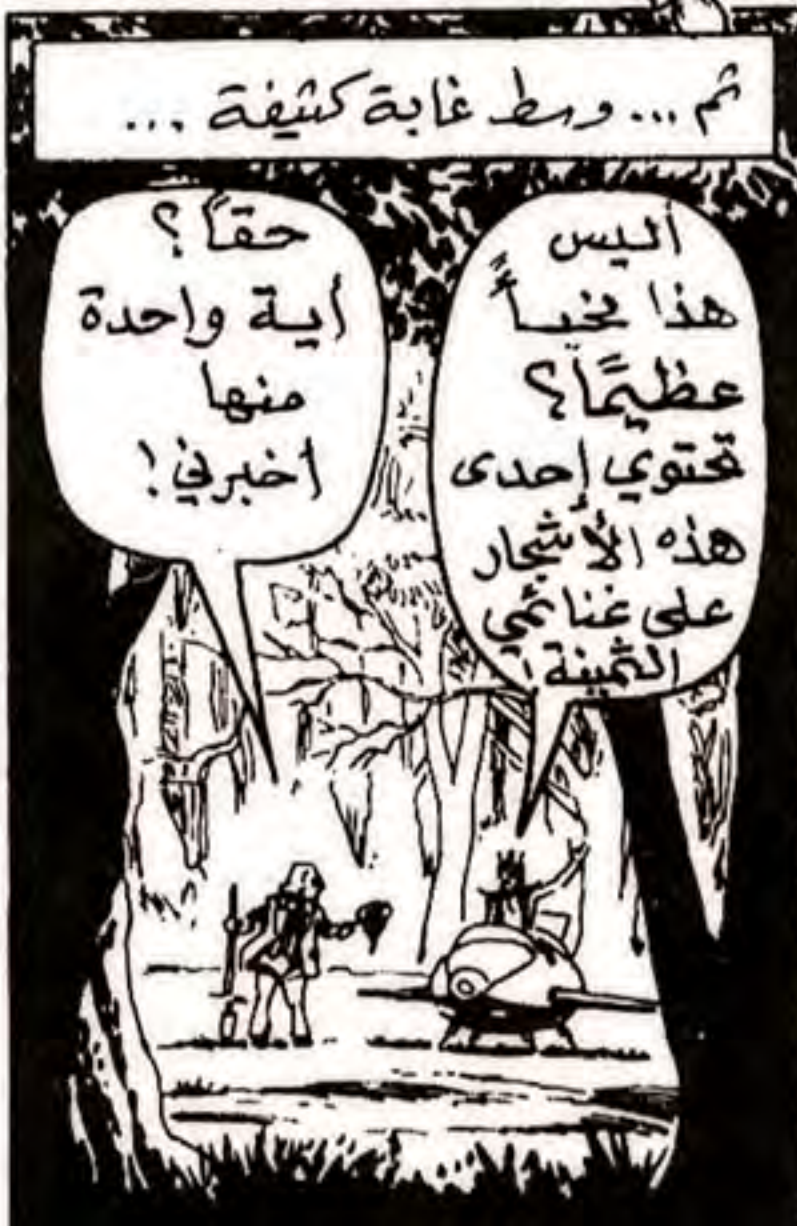 ثم ... وسط غابة كثيفة ...
أليس
هذا مخبأً
عظيمًا؟
تحتوي إحدى
هذه الأشجار
على غنائمي
الثمينة!
حقاً؟
أية واحدة
منها
أخبرني!